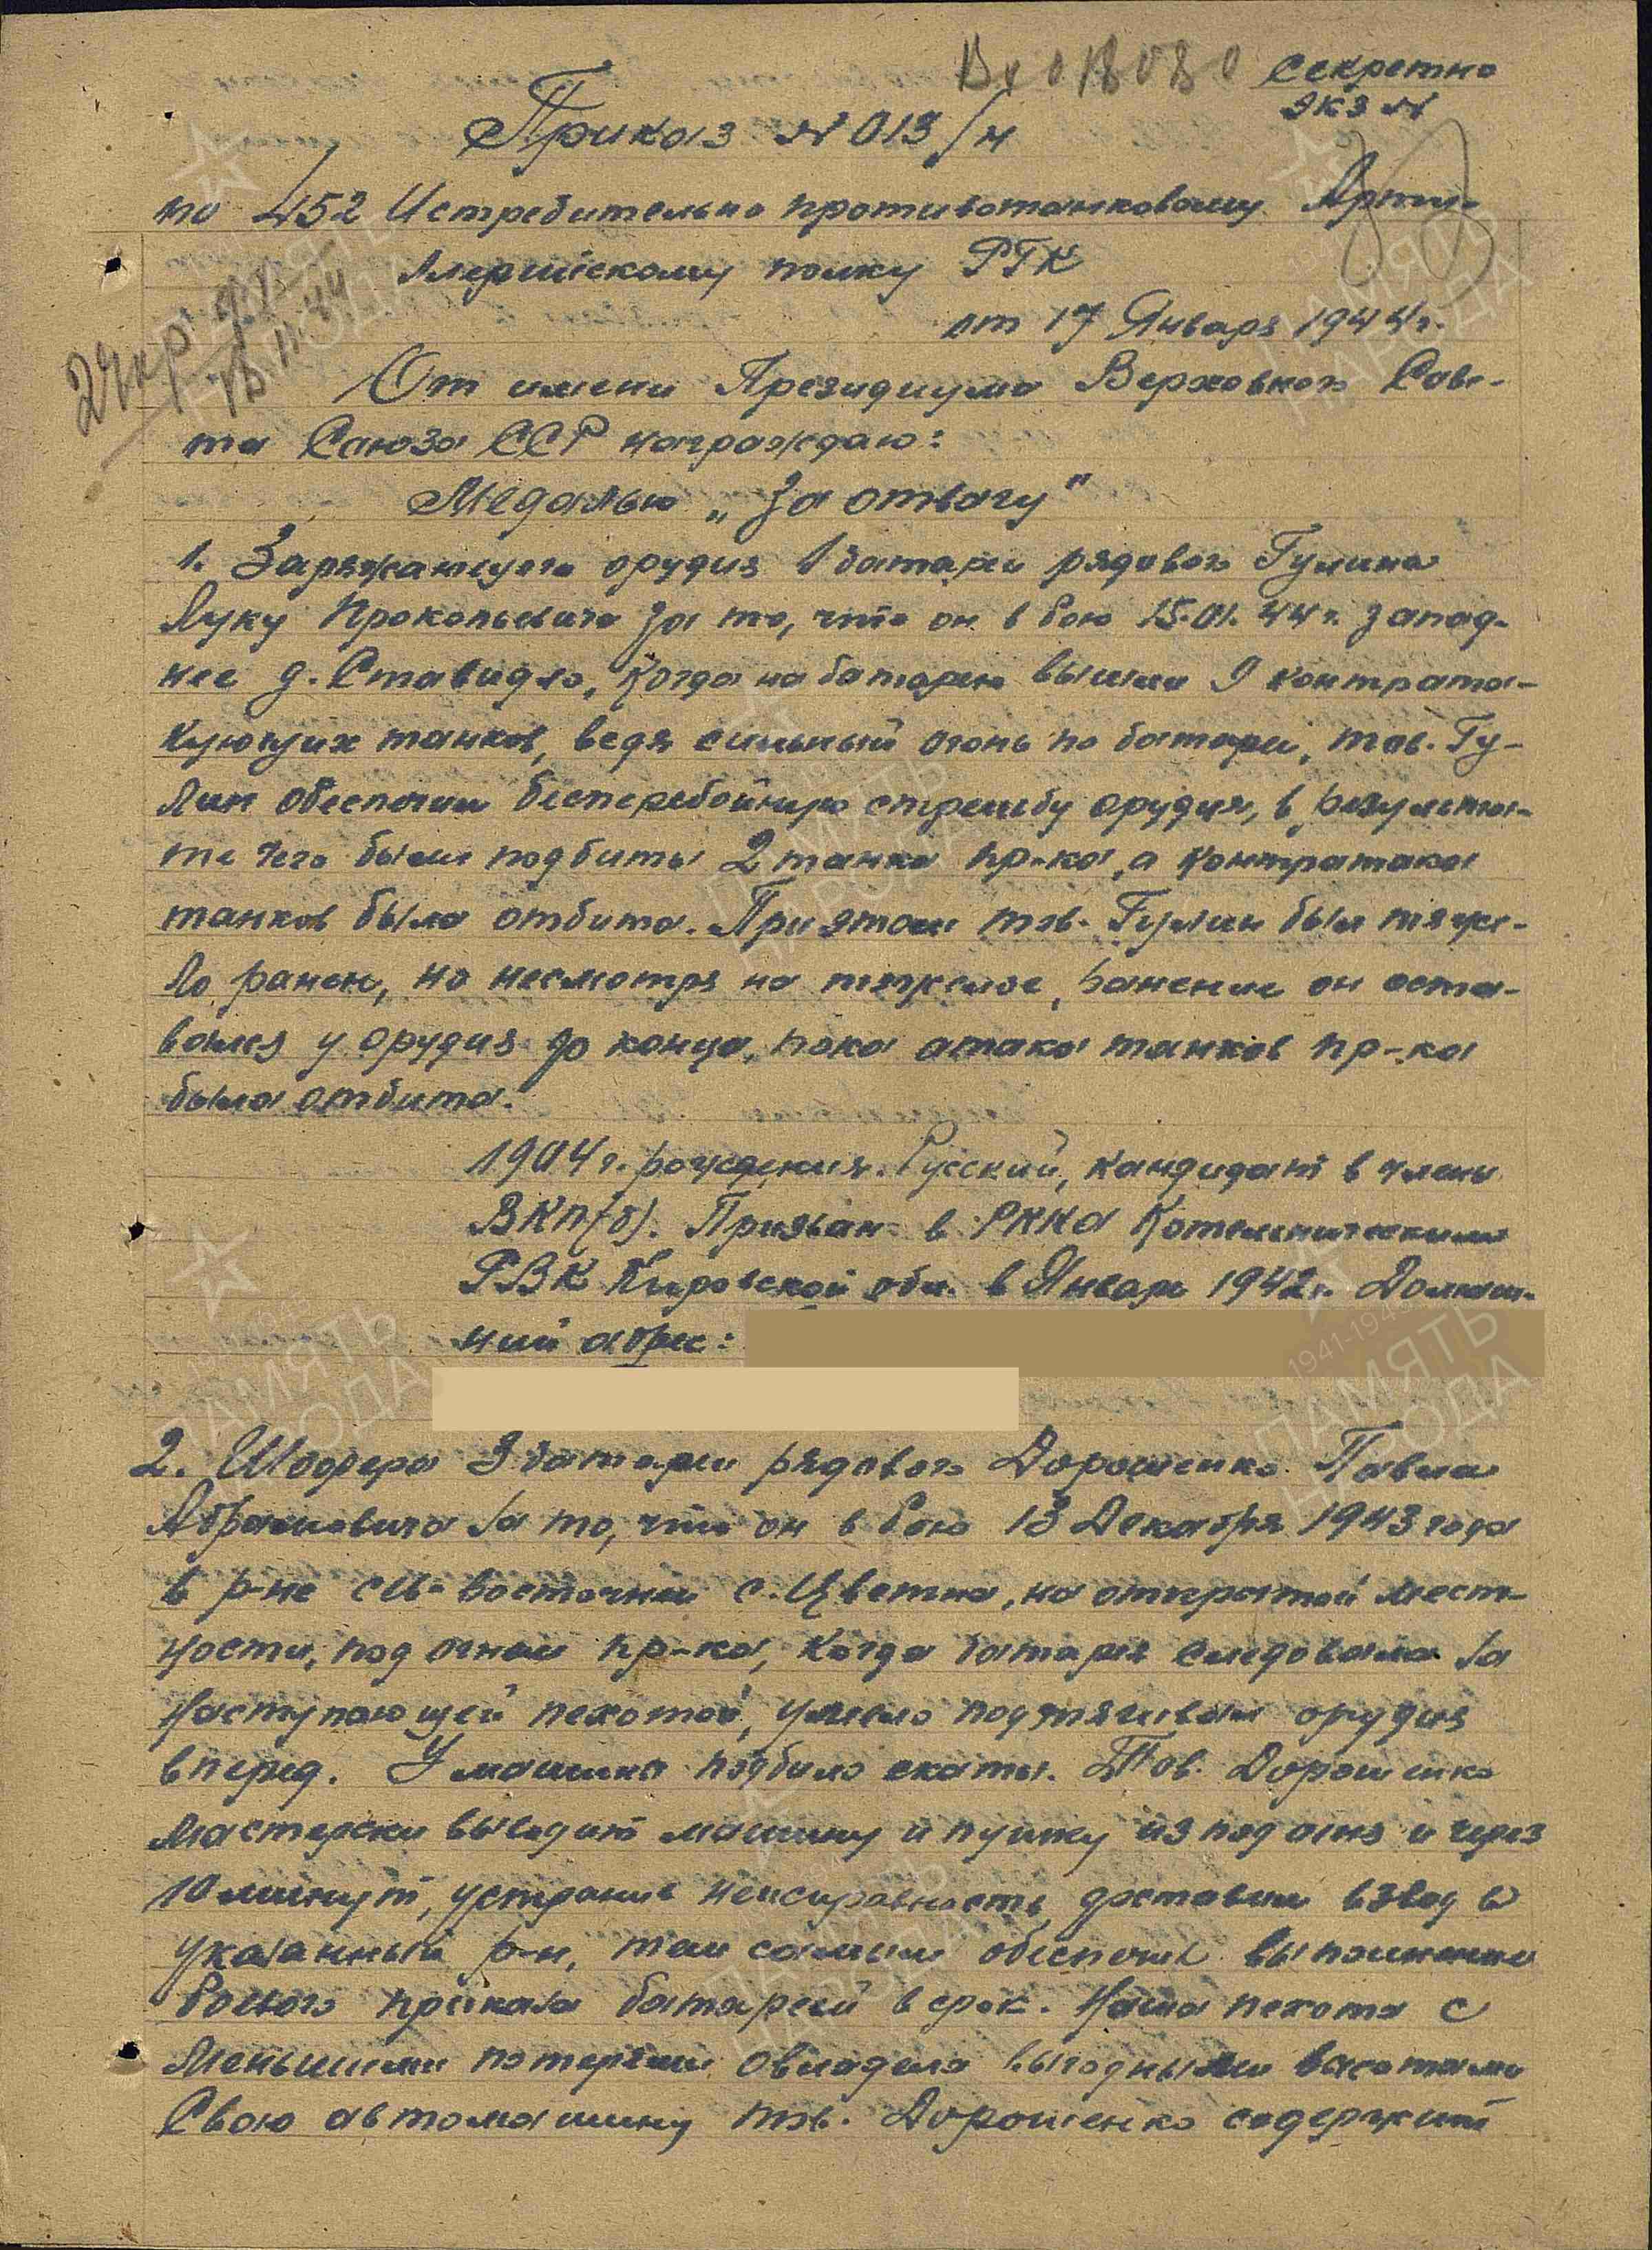 Вх 018080
Секретно
экз №
Приказ № 013/н
по 452 Истребительно противотанковому Арти-
ллерийскому полку РГК
от 17 Января 1944г.
От имени Президиума Верховного Сове-
та Союза ССР награждаю:
Медалью „За отвагу"
1. Заряжающего орудия 1 батареи рядового Гулина
Луку Прокопьевича за то, что он в бою 15.01.44 г. запад-
нее д. Ставидло, когда на батарею вышли 9 контрата-
кующих танков, ведя сильный огонь по батареи, тов. Гу-
лин обеспечил бесперебойную стрельбу орудия, в результа-
те чего были подбиты 2 танка пр-ка, а контратака
танков была отбита. При этом тов. Гулин был тяже-
ло ранен, но несмотря на тяжелое ранение он оста-
вался у орудия до конца, пока атака танков пр-ка
была отбита.
1904 г. рождения. Русский, кандидат в члены
ВКП(б). Призван в РККА Котельническим
РВК Кировской обл. в Январе 1942г. Домаш-
ний адрес:
2. Шофера 3 батареи рядового Дорошенко Павла
Абрамовича за то, что он в бою 13 Декабря 1943 года
в р-не восточней с. Цветна, на открытой мест-
ности, под огнем пр-ка, когда батарея следовала за
наступающей пехотой, умело подтягивал орудия
вперед. У машины подбило скаты. Тов. Дорошенко
мастерски выводит машину и пушку из под огня и через
10 минут, устранив неисправность, доставил взвод в
указанный р-н, тем самым обеспечил выполнение
боевого приказа батареей в срок. Наша пехота с
меньшими потерями овладела выгодными высотами
Свою автомашину тов. Дорошенко содержит
ПАМЯТЬ
НАРОДА
1941-1945